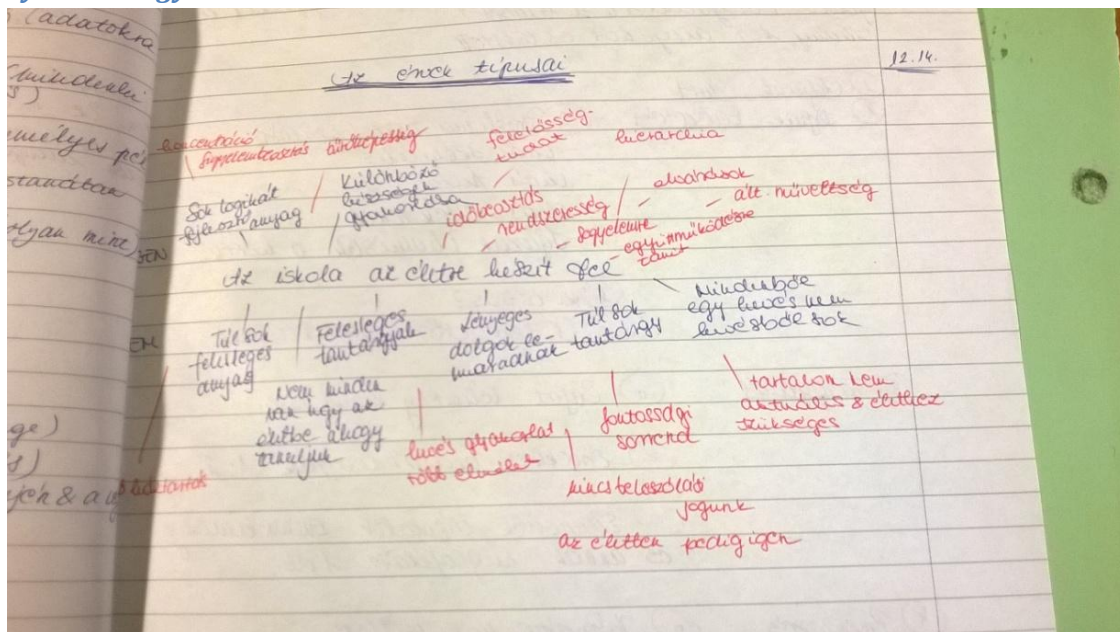 (adatokra
emélyes
olyan mint
Az érvek típusai
12.14.
koncentráció
tűrőképesség
felelősség-
tudat
hierarchia
Sok logikát
fejlesztő anyag
Különböző
készségek
gyakorlása
időbeosztás
rendszeresség
fegyelemre
együttműködésre
tanít
ált. műveltség
Az iskola az életre készít fel
Túl sok
felesleges
anyag
Felesleges
tantárgyak
Lényeges
dolgok le-
maradnak
Túl sok
tantárgy
Mindenből
egy kevés nem
kevésből sok
Nem minden
van úgy az
életbe ahogy
tanuljuk
kevés gyakorlat
több elmélet
fontossági
sorrend
tartalom nem
aktuális & élethez
szükséges
nincs beleszólási
jogunk
az életben pedig igen